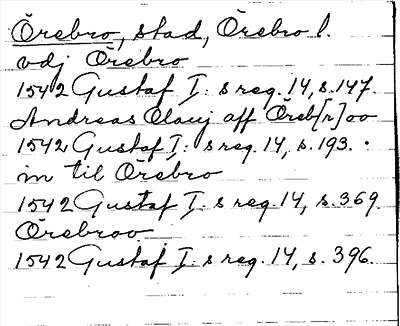 Örebro, stad, Örebro l.
vdj Örebro
1542 Gustaf I: s reg. 14, s. 147.
Andreas Olaij aff Öreb[r]oo
1542 Gustaf I: s reg. 14, s. 193.
in til Örebro
1542 Gustaf I: s reg. 14, s. 369.
Örebroo
1542 Gustaf I: s reg. 14, s. 396.